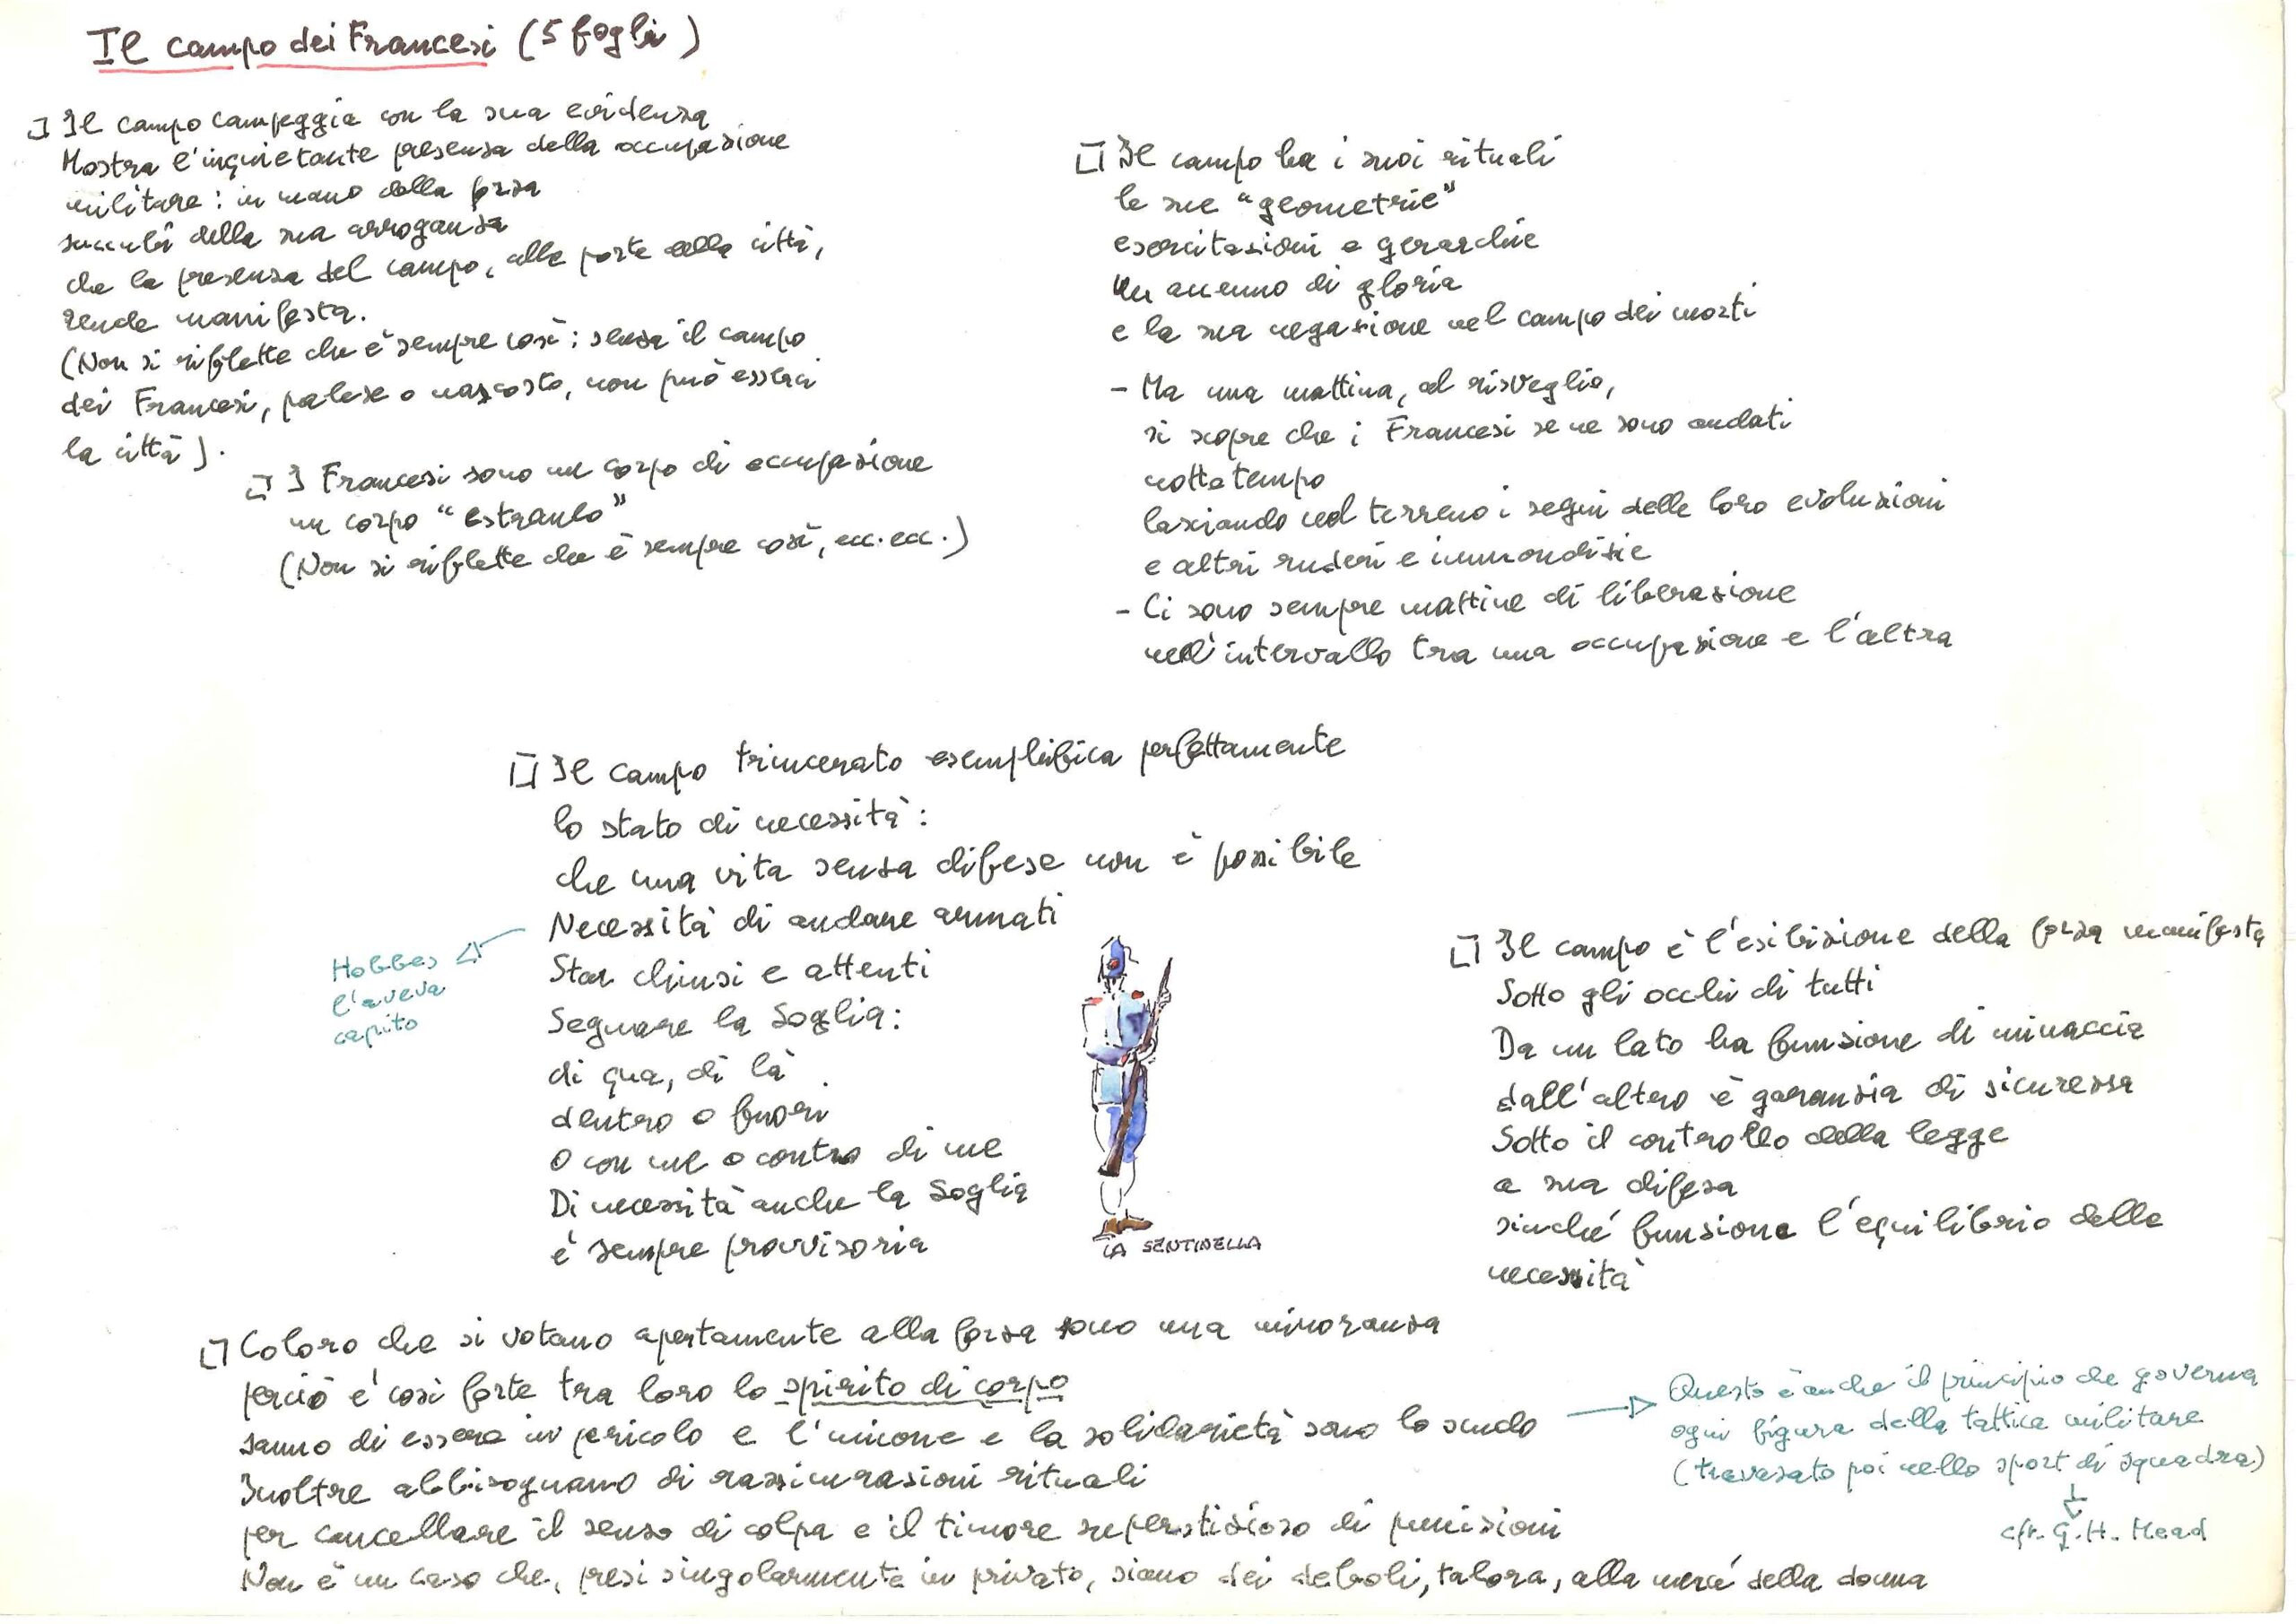 Il campo dei Francesi (5 fogli)
Il campo campeggia con la sua evidenza
Mostra l'inquietante presenza della occupazione
militare: in mano della forza
succubi della sua arroganza
che la presenza del campo, alle porte della città,
rende manifesta.
(Non si riflette che è sempre così; senza il campo
dei Francesi, palese o nascosto, non può esserci
la città).
I Francesi sono un corpo di occupazione
un corpo "estraneo"
(Non si riflette che è sempre così, ecc. ecc.)
Il campo ha i suoi rituali
le sue "geometrie"
esercitazioni e gerarchie
Un accenno di gloria
e la sua negazione nel campo dei morti
- Ma una mattina, al risveglio,
si scopre che i Francesi se ne sono andati
nottetempo
lasciando nel terreno i segni delle loro evoluzioni
e altri ruderi e immondizie
- Ci sono sempre mattine di liberazione
nell'intervallo tra una occupazione e l'altra
Il campo trincerato esemplifica perfettamente
lo stato di necessità:
che una vita senza difese non è possibile
Necessità di andare armati
Star chiusi e attenti
Segnare la Soglia:
di qua, di là
dentro o fuori
O con me o contro di me
Di necessità anche la Soglia
è sempre provvisoria
Hobbes
l'aveva
capito
LA SENTINELLA
Il campo è l'esibizione della forza manifesta
Sotto gli occhi di tutti
Da un lato ha funzione di minaccia
dall'altro è garanzia di sicurezza
Sotto il controllo della legge
a sua difesa
sinché funziona l'equilibrio delle
necessità
Coloro che si votano apertamente alla forza sono una minoranza
perciò è così forte tra loro lo spirito di corpo
sanno di essere in pericolo e l'unione e la solidarietà sono lo scudo
Inoltre abbisognano di rassicurazioni rituali
per cancellare il senso di colpa e il timore superstizioso di punizioni
Non è un caso che, presi singolarmente in privato, siano dei deboli, talora, alla mercé della donna
Questo è anche il principio che governa
ogni figura della tattica militare
(travasato poi nello sport di squadra)
cfr. G. H. Mead